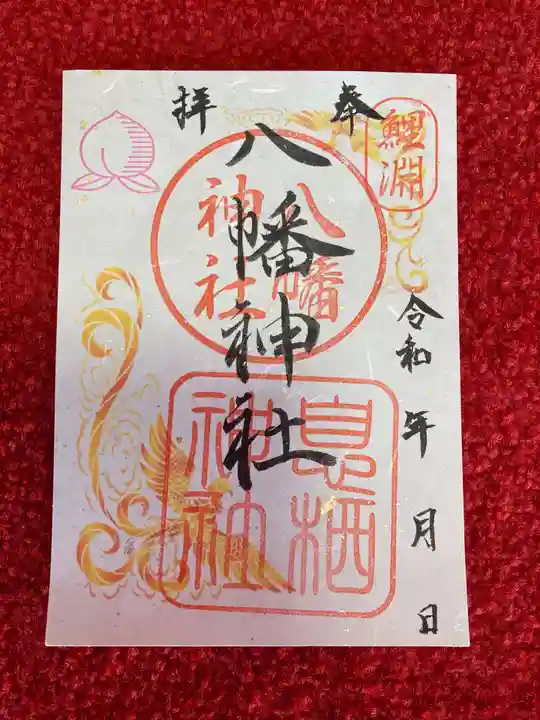 奉拝
八幡神社
鯉淵
八幡
神社
息栖
神社
令和 年 月 日